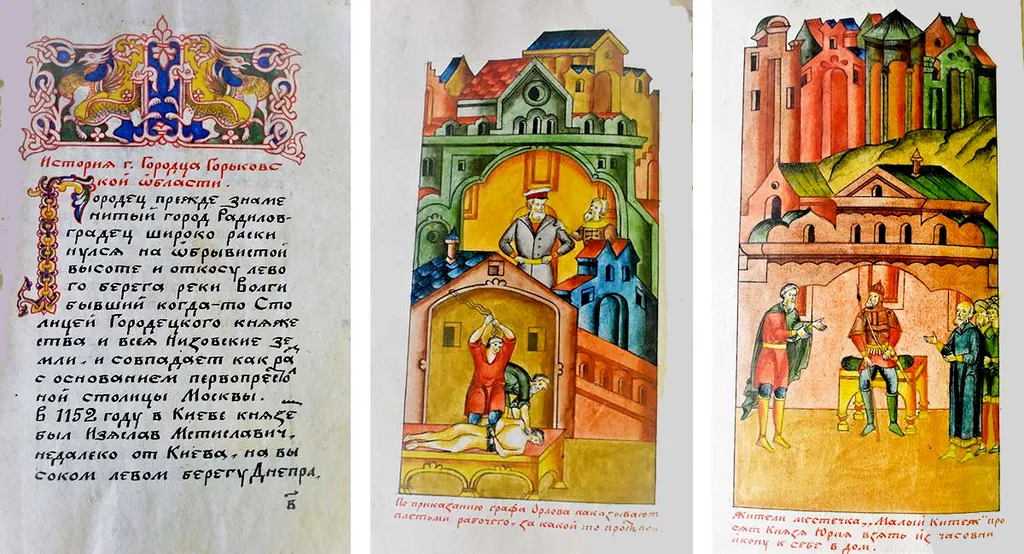 История г. Городца Горьковс
кой области.
Городец прежде знаме
нитый город Радилов-
градец широко раски
нулся на обрывистой
высоте и откосу лево
го берега реки Волги
бывший когда-то Сто
лицей Городецкого княже
ства и всея Низовские зе
мли, и совпадает как ра
с основанием первопресто
ной столицы Москвы.
В 1152 году в Киеве князе
был Изяслав Мстиславич,
недалеко от Киева, на вы
соком левом берегу Днепра,
По приказанию графа Орлова наказывают
плетьми рабочего, за какой-то
Жители местечка „Малый Китеж" про
сят Князя Юрия взять из часовни
икону к себе в дом.